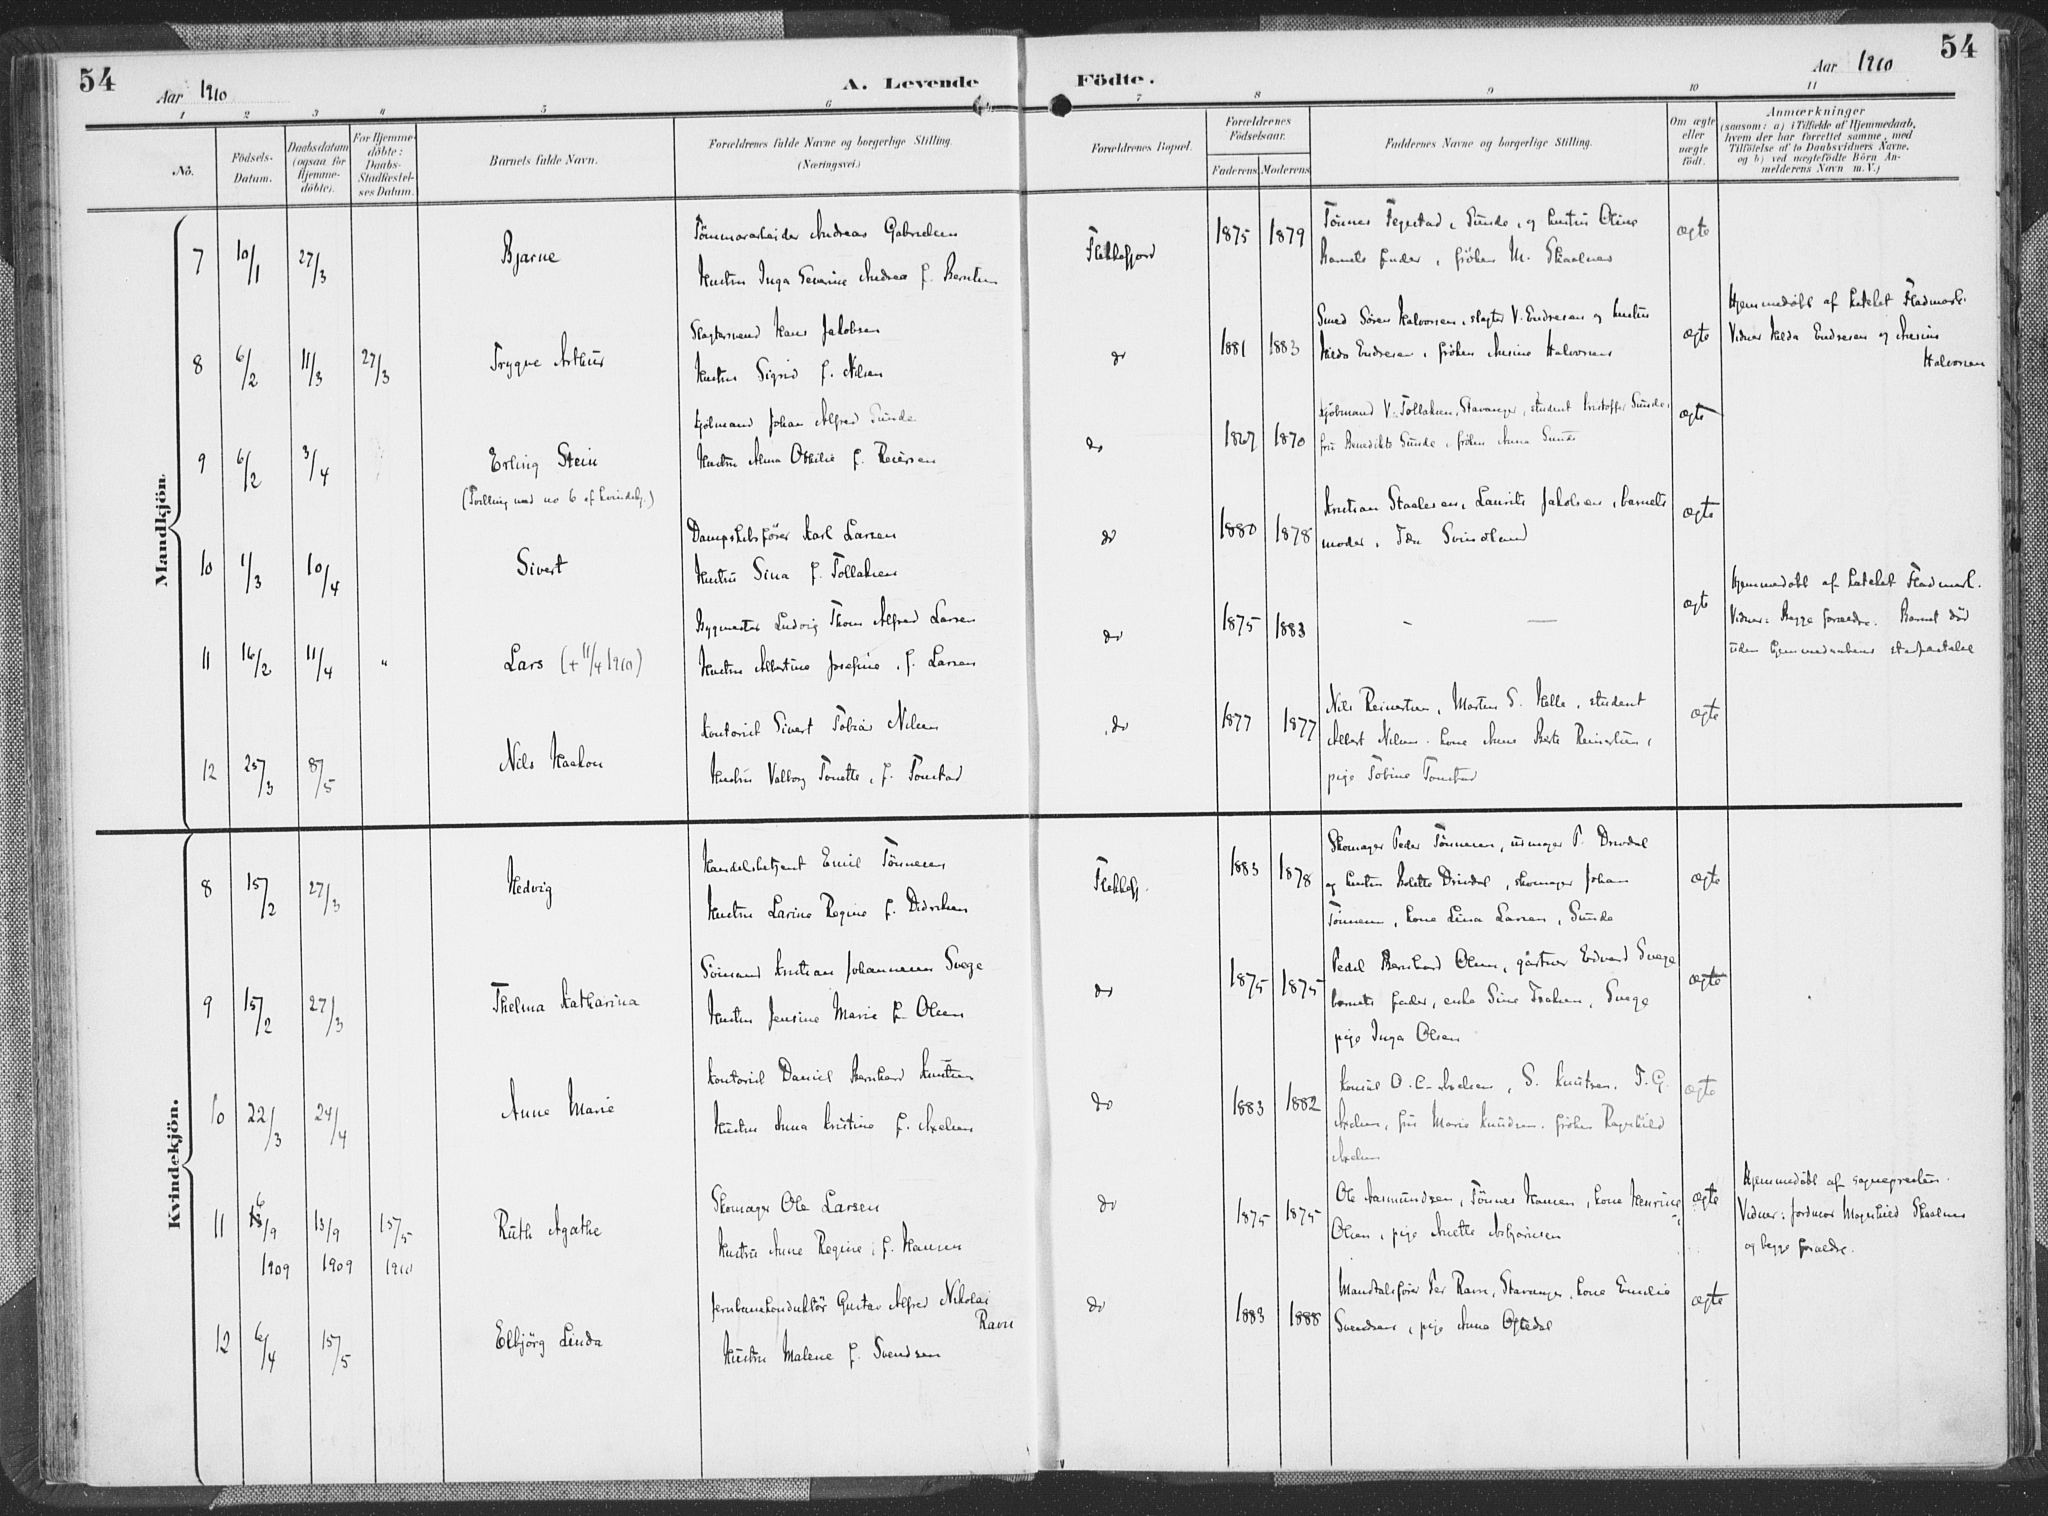 54
Aar 1910
A. Levende Födte.
Aar 1910
54
1 2 3 4 5 6 7 8 9 10 11
No.
Födsels-
Datum.
Daabsdatum
(ogsaa for
Hjemme-
döbte).
For Hjemme-
döbte:
Daabs-
Stadfæstel-
ses Datum.
Barnets fulde Navn.
Forældrenes fulde Navne og borgerlige Stilling.
(Næringsvei.)
Forældrenes Bopæl.
Forældrenes
Födselsaar.
Faderens Moderens
Faddernes Navne og borgerlige Stilling.
Om ægte
eller
uægte
födt.
Anmærkninger
(saasom: a) i Tilfælde af Hjemmedaab,
hvem der har forrettet samme, med
Tilföielse af to Daabsvidners Navne,
og b) ved uægtefödte Börn An-
melderens Navn m. V.)
Mandkjön.
7 10/1 27/3 Bjarne
Tömmerarbeider Andreas Gabrielsen
Hustru Inga Severine Andrea f. Berntsen
Flekkefjord 1875 1879
Tönnes Fegestad, Sunde, og hustru Oline
Barnets fader, fröken M. Skaalnes
ægte
8 6/2 11/3 27/3 Trygve Arthur
Slagtersvend Hans Jakobsen
Hustru Sigrid f. Nilsen
do 1881 1883
Smed Sören Halvorsen, slagter V. Endresen og hustru
Hilda Endresen, fröken Halvorsen
ægte
Hjemmedöbt af Fladmark.
Vidner Hilda Endresen og
Halvorsen
9 6/2 3/4 Erling Stein
(Tvilling med no 6 af kvindekj.)
Kjöbmand Johan Alfred Sunde
Hustru Alma Otkilie f. Reiersen
do 1867 1870
Kjöbmand V. Tollaksen, Stavanger, student Kristoffer Sunde,
fru Benedikte Sunde, fröken Anna Sunde
ægte
10 1/3 10/4 Sivert
Dampskibsförer Karl Larsen
Hustru Sina f. Tollaksen
do 1880 1878
Kristian Staalesen, Laurits Jakobsen, barnets
moder, Svindland
ægte
11 16/2 11/4 " Lars (+ 11/4 1910)
Bygmester Ludvig Thom Alfred Larsen
Hustru Albertine Josefine, f. Larsen
do 1875 1883
- —
ægte
Hjemmedöbt af Fladmark.
Vidner: Begge forældre. Barnet död
uden hjemmedaabens stadfæstelse
12 25/3 8/5 Nils Haakon
Kontorist Sivert Tobias Nilsen
Hustru Valborg Tonette, f. Tonstad
do 1877 1877
Nils Reinertsen, Morten S. Helle, student
Albert Nilsen. Kone Anne Berte Reinertsen,
pige Tobine Tonstad
ægte
Kvindekjön.
8 15/2 27/3 Hedvig
Handelsbetjent Emil Tönnesen
Hustru Larine Regine f. Didriksen
Flekkefj. 1883 1878
Skomager Peder Tönnesen, urmager P. Drivdal
og hustru Bolette Drivdal, skomager Johan
Tönnesen, kone Lina Larsen, Sunde
ægte
9 15/2 27/3 Thelma Katharina
Sömand Kristian Johannesen Svege
Hustru Jensine Marie f. Olsen
do 1875 1875
Pedel Bernhard Olsen, gårtner Edvard Svege
barnets fader, enke Sine Isaksen, Svege
pige Inga Olsen
ægte
10 22/3 24/4 Anne Marie
Kontorist Daniel Bernhard Knutsen
Hustru Anna Kristine f. Axelsen
do 1883 1882
Konsul O. C. Axelsen, S. Knutsen, T. G.
Axelsen, fru Marie Knudsen, fröken Ragnhild
Axelsen
ægte
11 6/9 1909 13/9 1909 15/5 1910 Ruth Agathe
Skomager Ole Larsen
Hustru Anne Regine, f. Hansen
do 1875 1875
Ole Aasmundsen, Tönnes Hansen, kone Henrine
Olsen, pige Anette Asbjörnsen
ægte
Hjemmedöbt af sognepresten.
Vidner: jordmor Magnhild Skaalnes
og begge forældre.
12 6/4 15/5 Elbjörg Linda
Jernbanekonduktör Gustav Alfred Nikolai
Ravn
Hustru Malene f. Svendsen
do 1883 1888
Mandtalsförer Per Ravn, Stavanger, kone Emilie
Svendsen, pige Anna Oftedal
ægte